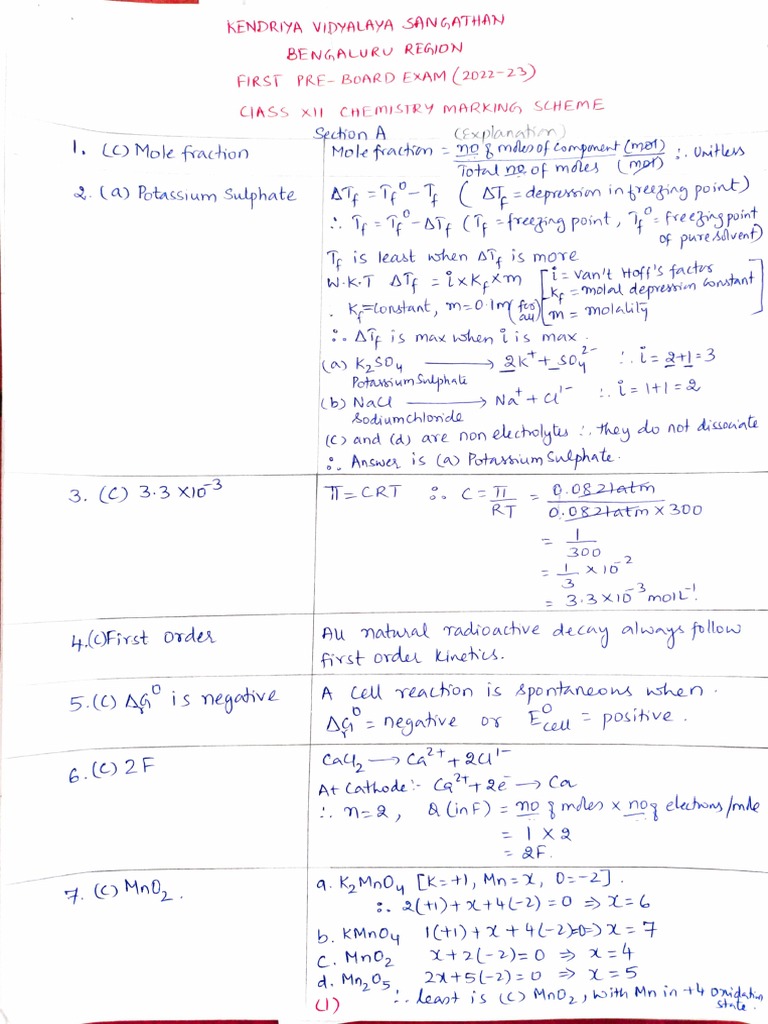 KENDRIYA VIDYALAYA SANGATHAN
BENGALURU REGION
FIRST PRE-BOARD EXAM (2022-23)
CLASS XII CHEMISTRY MARKING SCHEME
Section A (Explanation)
1. (C) Mole fraction
Mole fraction = no of moles of component (mol) / Total no of moles (mol) ∴ Unitless
2. (a) Potassium Sulphate
ΔTf = Tf⁰ - Tf ( ΔTf = depression in freezing point)
∴ Tf = Tf⁰ - ΔTf (Tf = freezing point, Tf⁰ = freezing point
of pure solvent)
Tf is least when ΔTf is more
W.K.T ΔTf = i × Kf × m [ i = van't Hoff's factor
Kf = molal depression constant
. Kf = constant, m = 0.1m (for all) m = molality
∴ ΔTf is max when i is max.
(a) K₂SO₄ → 2K⁺ + SO₄²⁻ ∴ i = 2+1 = 3
Potassium Sulphate
(b) NaCl → Na⁺ + Cl¹⁻ ∴ i = 1+1 = 2
Sodium chloride
(c) and (d) are non electrolytes ∴ they do not dissociate
∴ Answer is (a) Potassium Sulphate.
3. (C) 3.3 × 10⁻³
π = CRT ∴ C = π / RT = 0.0821atm / 0.0821atm × 300
= 1 / 300
= 1/3 × 10⁻²
= 3.3 × 10⁻³ mol L⁻¹.
4. (C) First Order
All natural radioactive decay always follow
first order kinetics.
5. (C) ΔrG⁰ is negative
A cell reaction is spontaneous when.
ΔrG⁰ = negative or E⁰cell = positive.
6. (C) 2F
CaCl₂ → Ca²⁺ + 2Cl¹⁻
At Cathode:- Ca²⁺ + 2e⁻ → Ca
∴ n = 2, Q (in F) = no of moles × no of electrons/mole
= 1 × 2
= 2F.
7. (C) MnO₂.
a. K₂MnO₄ [K = +1, Mn = x, O = -2].
∴ 2(+1) + x + 4(-2) = 0 ⇒ x = 6
b. KMnO₄ 1(+1) + x + 4(-2) = 0 ⇒ x = 7
c. MnO₂ x + 2(-2) = 0 ⇒ x = 4
d. Mn₂O₅ 2x + 5(-2) = 0 ⇒ x = 5
∴ least is (C) MnO₂, with Mn in +4 oxidation
state.
(1)